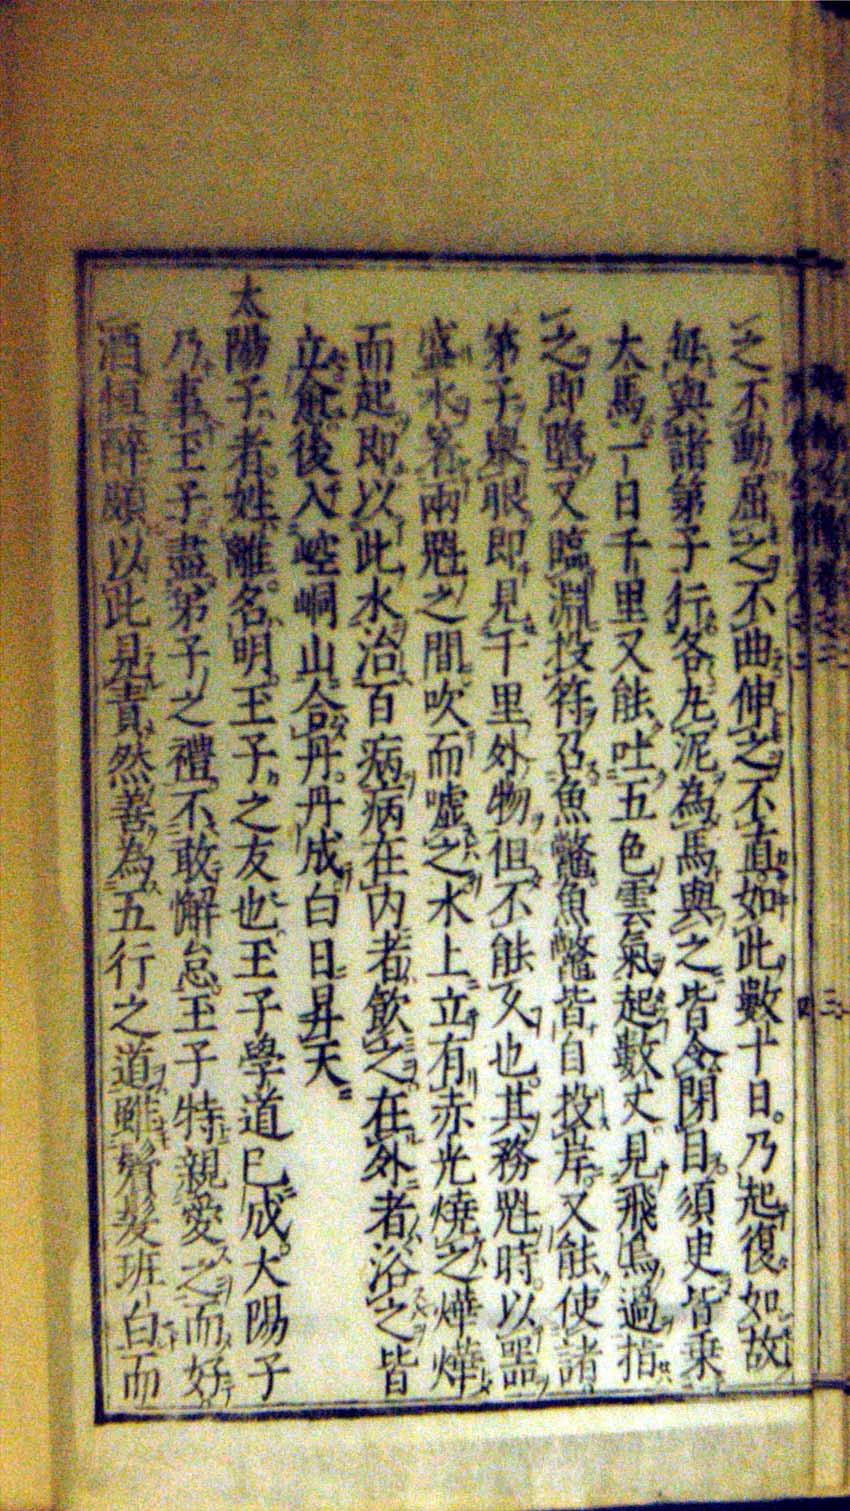 之不動屈之不曲伸之不直如此數十日乃起復如故
每與諸第子行各丸泥為馬與之皆令閉目須臾皆乗
大馬一日千里又能吐五色雲氣起數丈見飛鳥過指
之即墮又臨淵投符召魚鼈魚鼈皆自投岸又能使諸
第子舉眼即見千里外物但不能久也其務魁時以器
盛水著兩魁之間吹而噓之水上立有赤光燒之燁燁
而起即以此水治百病病在内者飲之在外者浴之皆
立愈後入崆峒山合丹丹成白日昇天
太陽子者姓離名明玉子之友也玉子學道已成太陽子
乃事玉子盡弟子之禮不敢懈怠玉子特親愛之而好
酒恒醉頗以此見責然善為五行之道雖鬢髮班白而